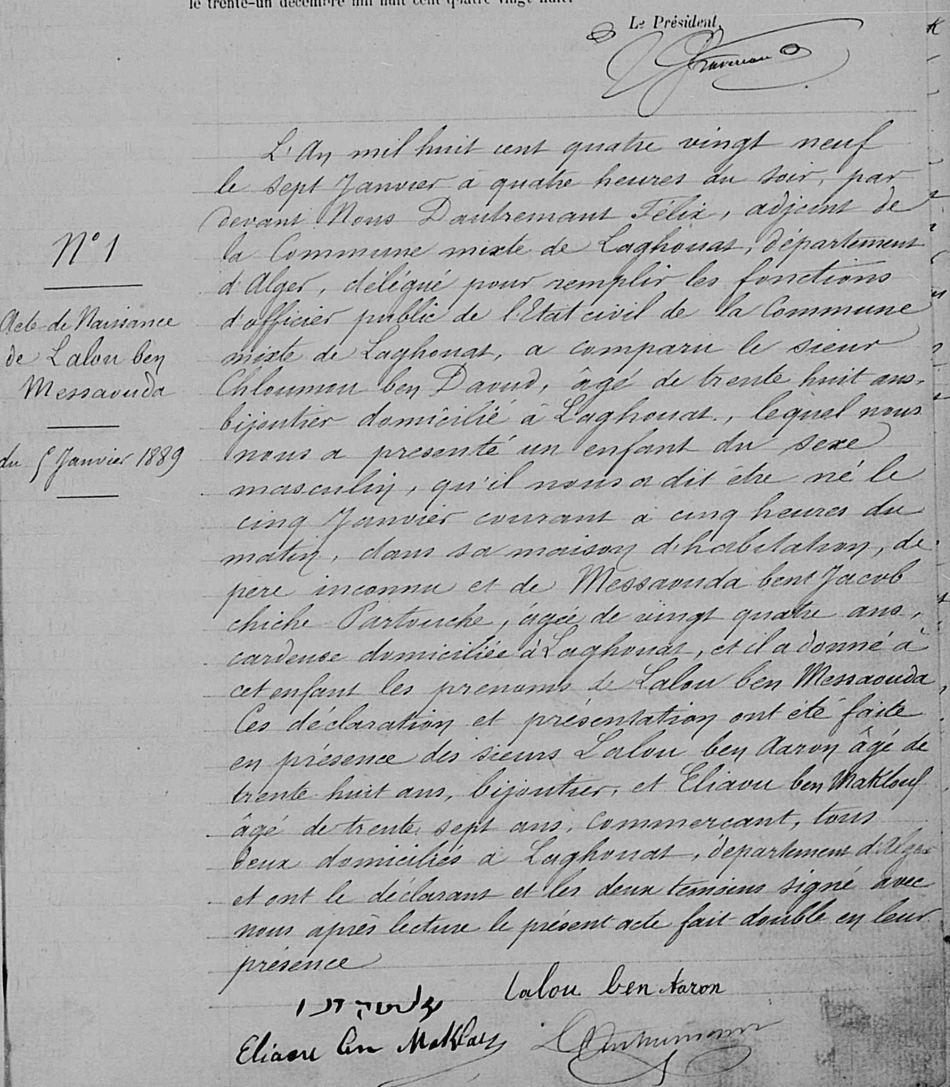 le trente-un décembre mil huit cent quatre vingt huit.
Le Président,
N° 1
Acte de Naissance
de Lalou ben
Messaouda
du 5 Janvier 1889
L'An mil huit cent quatre vingt neuf
le sept Janvier à quatre heures du soir, par
devant Nous Dautremant Félix, adjoint de
la Commune mixte de Laghouat, département
d'Alger, délégué pour remplir les fonctions
d'officier public de l'Etat civil de la Commune
mixte de Laghouat, a comparu le sieur
Chloumou ben Daoud, âgé de trente huit ans,
bijoutier domicilié à Laghouat, lequel nous
nous a présenté un enfant du sexe
masculin, qu'il nous a dit être né le
cinq Janvier courant à cinq heures du
matin, dans sa maison d'habitation, de
père inconnu et de Messaouda bent Jacob
chiche Partouche, âgée de vingt quatre ans,
cardeuse domiciliée à Laghouat, et il a donné à
cet enfant les prénoms de Lalou ben Messaouda
Ces déclaration et présentation ont été faite
en présence des sieurs Lalou ben Aaron âgé de
trente huit ans, bijoutier, et Eliaou ben Maklouf
âgé de trente sept ans, commerçant, tous
deux domiciliés à Laghouat, département d'Alger
et ont le déclarant et les deux témoins signé avec
nous après lecture le présent acte fait double en leur
présence
Lalou ben Aaron
Eliaou ben Maklouf